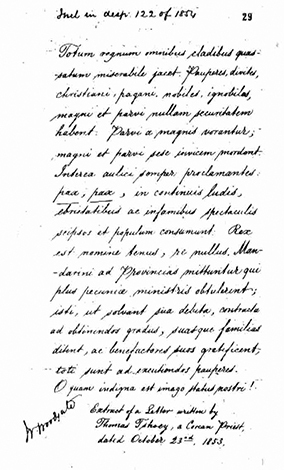 Incl in desp. 122 of 1854
29
Totum regnum omnibus cladibus quas-
satum miserabile jacet. Pauperes, divites,
christiani, pagani, nobiles, ignobiles,
magni et parvi nullam securitatem
habent. Parvi a magnis vorantur;
magni et parvi sese invicem mordent.
Interea aulici semper proclamantes:
pax, pax, in continuis ludis,
ebrietatibus ac infamibus spectaculis
seipsos et populum consumunt. Rex
est nomine tenus, re nullus. Man-
darini ad Provincias mittuntur qui
plus pecuniæ ministris obtulerint;
isti, ut solvant sua debita, contracta
ad obtinendos gradus, suasque familias
ditent, ac benefactores suos gratificent,
toti sunt ad excutiendos pauperes.
O quam indigna est imago status nostri!
Extract of a Letter written by
Thomas Tshoey, a Corean Priest,
dated October 23rd, 1853.
W Woodgate